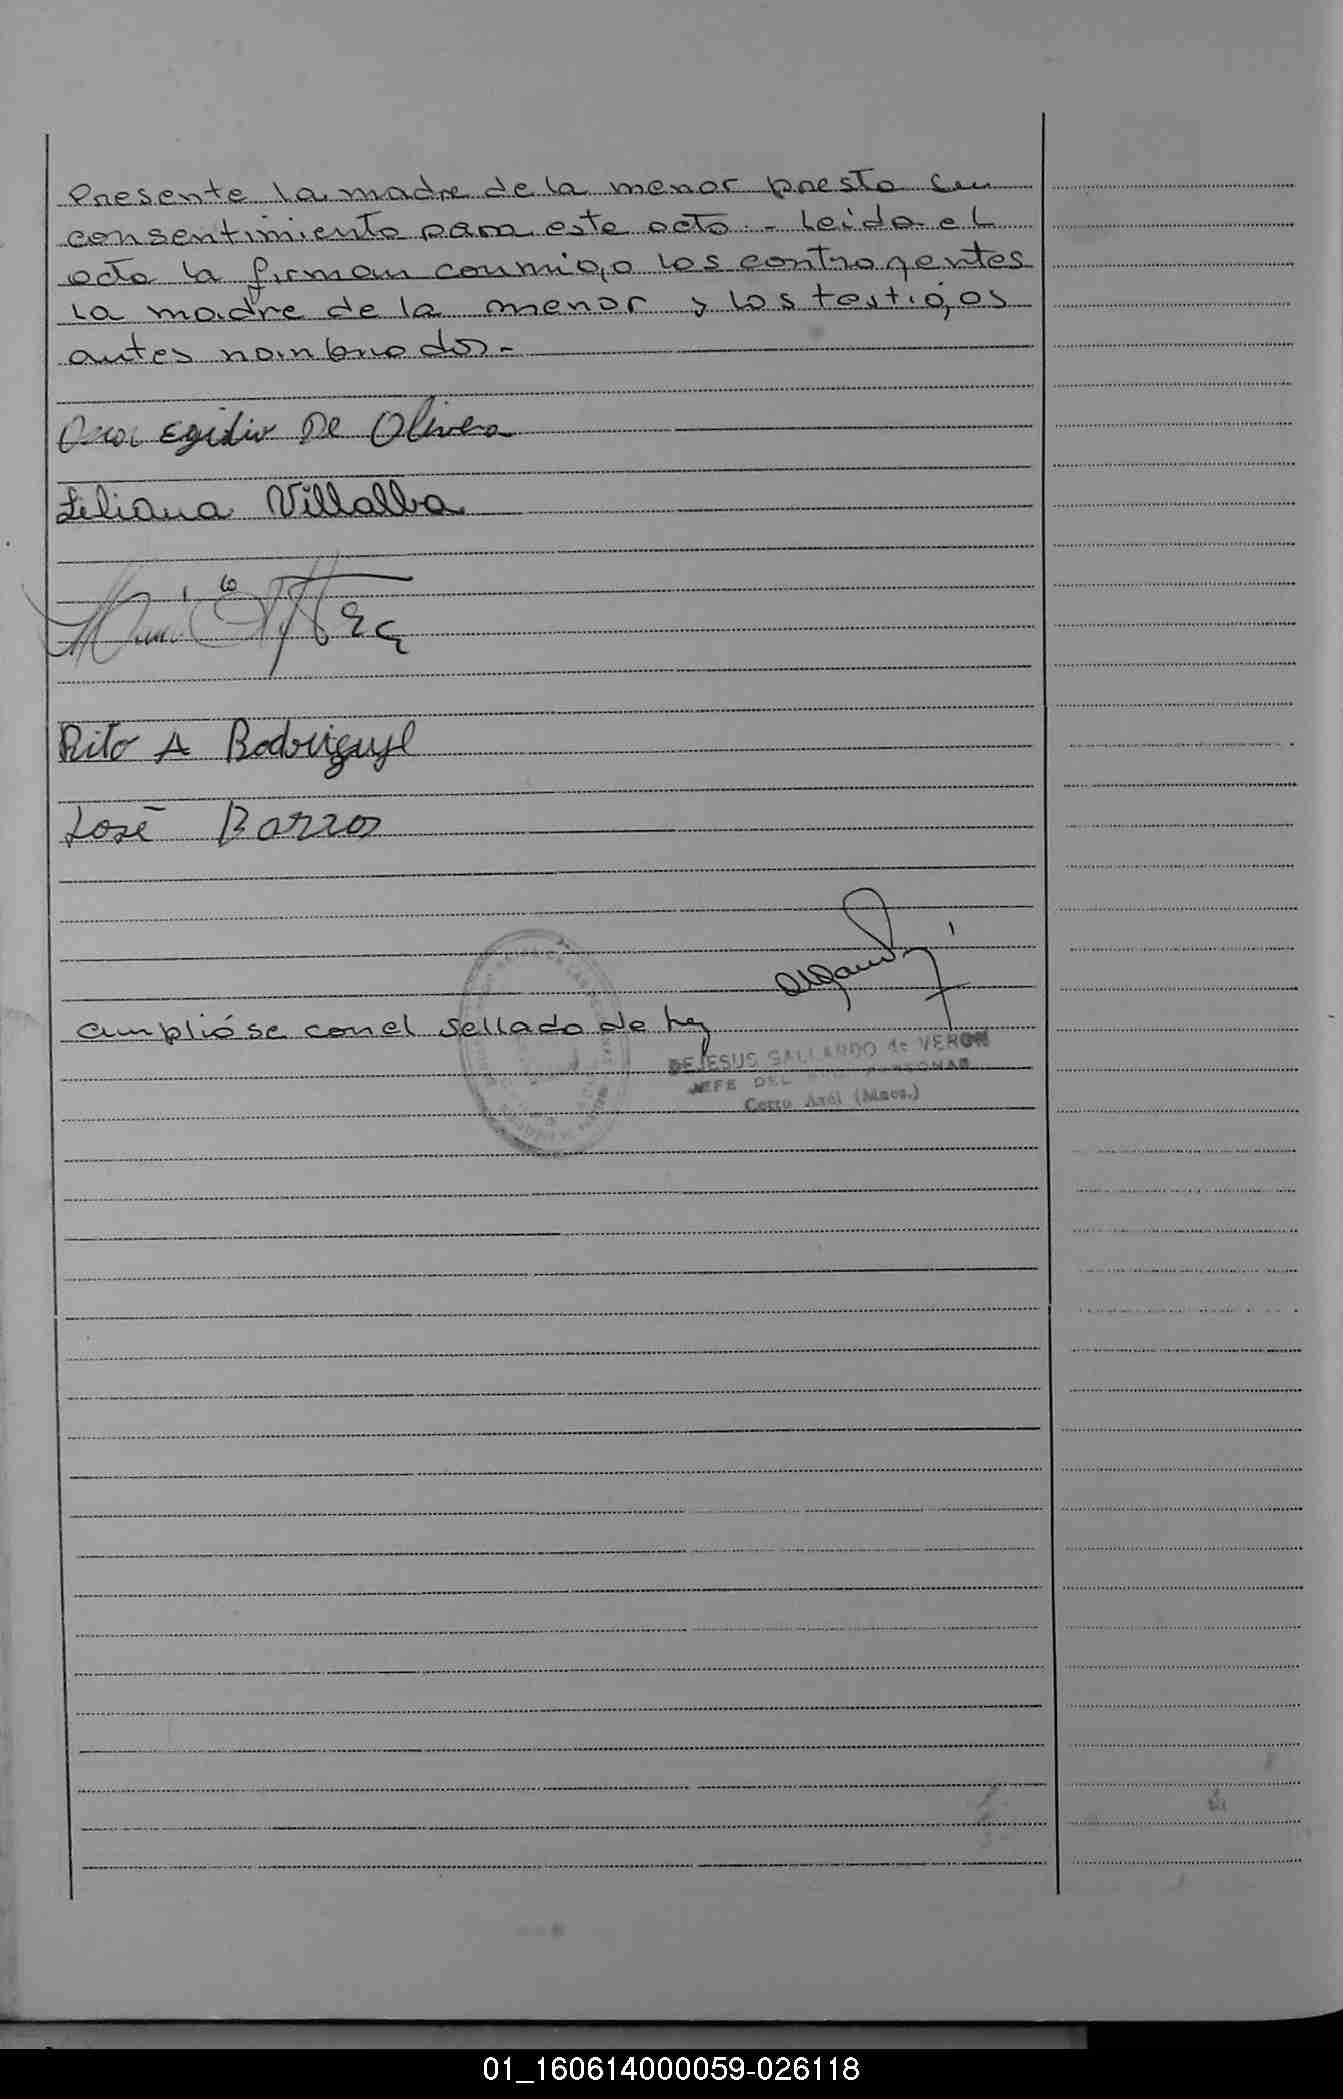 Presente la madre de la menor presta su
consentimiento para este acto. - Leida el
acta la firman conmigo los contrayentes
la madre de la menor y los testigos
antes nombrados.-
Egidio De Olivera
Liliana Villalba
Rito A Rodriguez
José Barros
Cumplióse con el sellado de ley
DEJESUS GALLARDO de VERON
JEFE DEL
Cerro Azul (Mnes.)
01_160614000059-026118